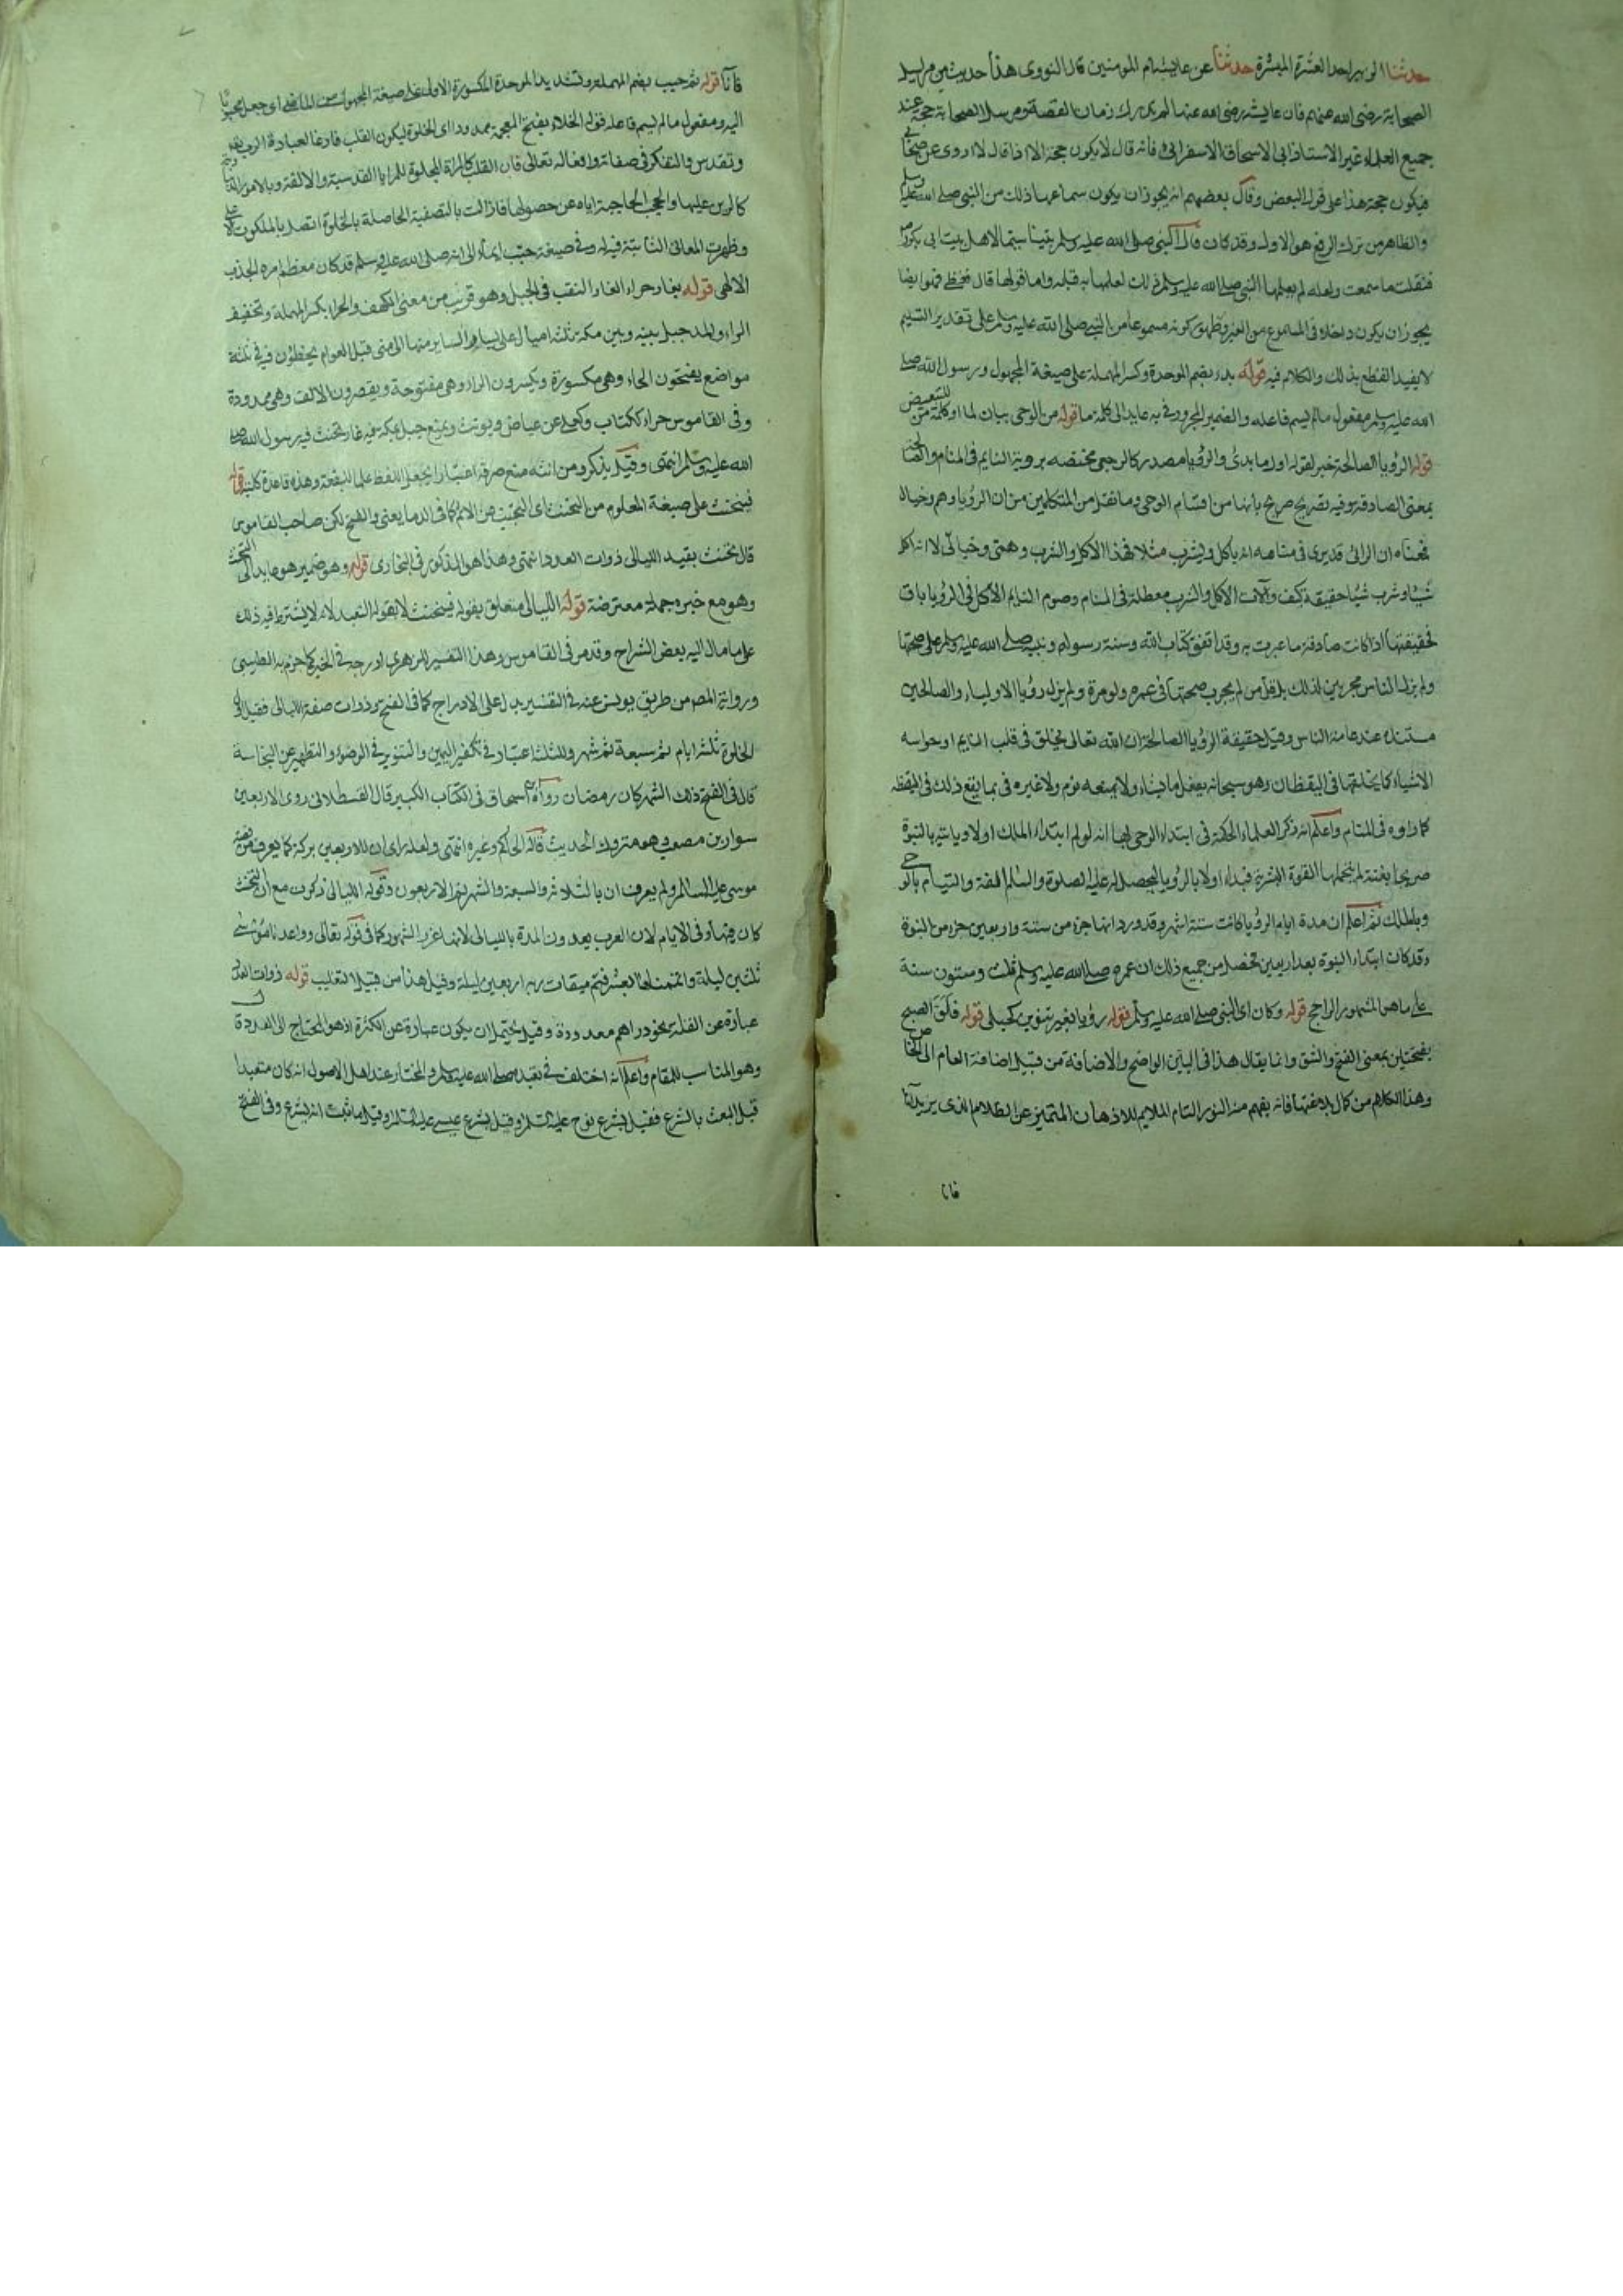 حدثنا الزبير احد العشرة المبشرة حدثنا عن عايشة ام المومنين قال النووى هذا حديث من مراسيل
الصحابة رضى الله عنهم فان عايشة رضى الله عنها لم يدرك زمان القصة ومرسل الصحابة حجة عند
جميع العلماء غير الاستاذ ابى الاسحاق الاسفراينى فانه قال لا يكون حجة الا اذا قال لا اروى عن صحابى
فيكون حجة هذا على قول البعض وقال بعضهم انه يجوز ان يكون سماعها ذلك من النبى صلى الله عليه وسلم
والظاهر من ترك الرفع هو الاول وقد كان قال النبى صلى الله عليه وسلم بيتنا سيما لاهل بيت ابى بكر
فنقلت ما سمعت ولعله لم يعلمها النبى صلى الله عليه وسلم ذلك لعلمها به قبله واما قولها قال فغطنى فهو ايضا
يجوز ان يكون داخلا فى المسموع من الغير وظهور كونه مسموعا من النبى صلى الله عليه وسلم على تقدير التسليم
لا يفيد القطع بذلك والكلام فيه قوله بدئ بضم الموحدة وكسر المهملة على صيغة المجهول ورسول الله صلى
الله عليه وسلم مفعول مالم يسم فاعله والضمير المجرور فى به عايد الى كلمة ما قوله من الوحى بيان لما او كلمة من للتبعيض
قوله الرؤيا الصالحة خبر لقوله اول ما بدئ والرؤيا مصدر كالرجعى مختصة برؤية النايم فى المنام والصالحة
بمعنى الصادقة وفيه تصريح صريح بانها من اقسام الوحى وما نقل من المتكلمين من ان الرؤيا وهم وخيال
فمعناه ان الرائى قد يرى فى منامه انه ياكل ويشرب مثلا فهذا الاكل والشرب وهمى وخيالى لا انه اكل
شيئا وشرب شيئا حقيقة كيف وآلات الاكل والشرب معطلة فى المنام وصوم النايم الآكل فى الرؤيا باق
فحقيقتها اذا كانت صادقة ما عبرت به وقد اتفق كتاب الله وسنة رسوله ونبيه صلى الله عليه وسلم على صحتها
ولم يزل الناس مجربين لذلك بل قل من لم يجرب صحتها فى عمره ولو مرة ولم يزل رؤيا الاولياء والصالحين
عند عامة الناس وقيل حقيقة الرؤيا الصالحة ان الله تعالى يخلق فى قلب النايم او حواسه
الاشياء كما يخلقها فى اليقظان وهو سبحانه يفعل ما يشاء ولا يمنعه نوم ولا غيره فربما يقع ذلك فى اليقظة
كما راه فى المنام واعلم انه ذكر العلماء الحكمة فى ابتداء الوحى بها انه لو لم ابتداء الملك اولا وياتيه بالنبوة
صريحا بغتة لم يتحملها القوة البشرية فبداء اولا بالرؤيا ليحصل له عليه الصلوة والسلام الفة والتيام بالوحى
وبالملك ثم اعلم ان مدة ايام الرؤيا كانت ستة اشهر وقد ورد انها جزء من ستة واربعين جزء من النبوة
وقد كان ابتداء النبوة بعد اربعين فحصل من جميع ذلك ان عمره صلى الله عليه وسلم ثلث وستون سنة
على ما هو المشهور الراجح قوله وكان اى النبى صلى الله عليه وسلم قوله رؤيا بغير تنوين كحبلى قوله فلق الصبح
بفتحتين بمعنى الفتح والشق وانما يقال هذا فى البين الواضح والاضافة من قبيل اضافة العام الى الخاص
وهذا الكلام من كمال بلاغتها فانه يفهم منه النور التام الملايم للاذهان المتميز عن الظلام الذى
فانا
فانا قوله ثم حبب بضم المهملة وتشديد الموحدة المكسورة الاولى على صيغة المجهول من الماضى اى جعل محبوبا
اليه ومفعول مالم يسم فاعله قوله الخلاء بفتح المعجمة ممدودا اى الخلوة ليكون القلب فارغا لعبادة الرب
وتقدس والتفكر فى صفاته وافعاله تعالى فان القلب كالمرآة المجلوة للمرايا القدسية والالفة وبالامور
كالرين عليها والحجب الحاجبة اياه عن حصولها فاذا زالت بالتصفية الحاصلة بالخلوة اتصل بالملكوت
وظهرت المعانى الثابتة فيه وفى صيغة حبب ايماء الى انه صلى الله عليه وسلم قد كان معظم امره الجذب
الالهى قوله بغار حراء الغار النقب فى الجبل وهو قريب من معنى الكهف والحراء بكسر المهملة وتخفيف
الراء والمد جبل بينه وبين مكة ثلثة اميال على يسار الساير منها الى منى قيل العوام يخطؤن فيه فى ثلثة
مواضع يفتحون الحاء وهى مكسورة ويكسرون الراء وهى مفتوحة ويقصرون الالف وهى ممدودة
وفى القاموس حراء ككتاب وكعلى عن عياض ويونث ويمنع جبل بمكة فيه غار تحنث فيه رسول الله صلى
الله عليه وسلم انتهى وقيل يذكر ومن انثه منع صرفه اعتبارا بجعل اللفظ علما للبقعة وهذه قاعدة كلية قوله
فيتحنث على صيغة المعلوم من التحنث اى التجنب من الاثم كما فى الدمايعنى والفتح لكن صاحب القاموس
قال تحنث بقيد الليالى ذوات العدد انتهى وهذا هو المذكور فى البخارى قوله وهو ضمير هو عايد الى التحنث
وهو مع خبره جملة معترضة قوله الليالى متعلق بقوله فيتحنث لا بقوله التعبد لانه لا يشترط فيه ذلك
على ما مال اليه بعض الشراح وقد مر فى القاموس وهذا التفسير للزهرى ادرجه فى الخبر كما جزم به الطيبى
ورواية المص من طريق يونس عنه فى التفسير يدل على الادراج كما فى الفتح وذوات صفة الليالى فقيل اقل
الخلوة ثلثة ايام ثم سبعة ثم شهر وللثلث اعتبار فى تكفير اليمين والتنوير فى الوضوء والتطهير عن النجاسة
قال فى الفتح ذلك الشهر كان رمضان رواه ابن اسحاق فى الكتاب الكبير قال القسطلانى روى الاربعين
سوار بن مصعب وهو متروك الحديث قاله الحاكم وغيره انتهى ولعله راى ان للاربعين بركة كما يعرف من قصة
موسى عليه السلام ولم يعرف ان بالثلاثة والسبعة والشهر ثم الاربعون وقوله الليالى ذكرت مع ان التحنث
كان فيها وفى الايام لان العرب يعدون المدة بالليالى لانها غرر الشهور كما فى قوله تعالى وواعدنا موسى
ثلثين ليلة واتممناها بعشر فتم ميقات ربه اربعين ليلة وقيل هذا من قبيل التغليب قوله ذوات العدد
عبارة عن القلة نحو دراهم معدودة وقيل يحتمل ان يكون عبارة عن الكثرة اذ هو المحتاج الى العدد
وهو المناسب للمقام واعلم انه اختلف فى تعبده صلى الله عليه وسلم والمختار عند اهل الاصول انه كان متعبدا
قبل البعث بالشرع فقيل بشرع نوح عليه السلام وقيل بشرع عيسى عليه السلام وقيل ما ثبت انه بشرع وفى الفتح